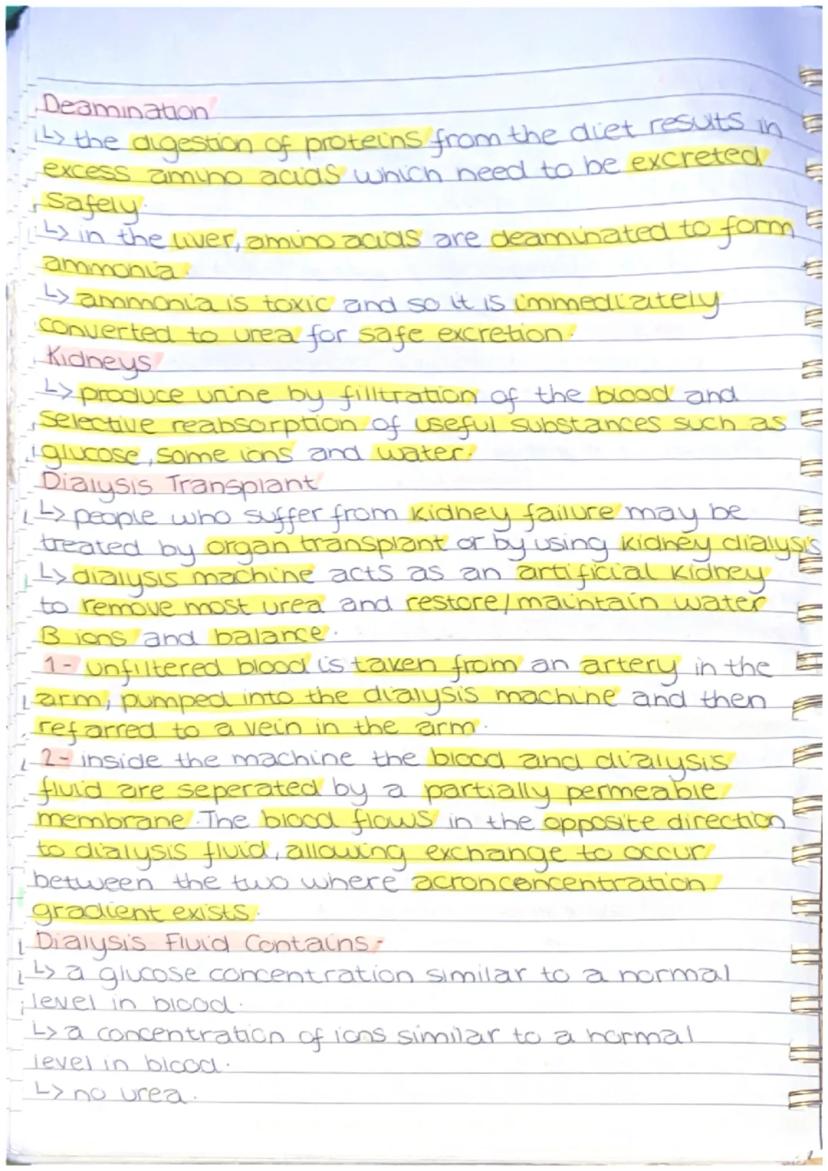 Deamination
↳ the digestion of proteins from the diet results in
excess amino acids which need to be excreted
safely.
↳ in the liver, amino acids are deaminated to form
ammonia.
↳ ammonia is toxic and so it is immediately
converted to urea for safe excretion.
Kidneys
↳ produce urine by filltration of the blood and
selective reabsorption of useful substances such as
glucose, some ions and water.
Dialysis Transplant
↳ people who suffer from kidney failure may be
treated by organ transplant or by using kidney dialysis
↳ dialysis machine acts as an artificial kidney
to remove most urea and restore/maintain water
B ions and balance.
1- unfiltered blood is taken from an artery in the
arm, pumped into the dialysis machine and then
refarred to a vein in the arm.
2- inside the machine the blood and dialysis
fluid are seperated by a partially permeable
membrane. The blood flows in the opposite direction
to dialysis fluid, allowing exchange to occur
between the two where acronconcentration
gradient exists.
Dialysis Fluid Contains:-
↳ a glucose concentration similar to a normal
level in blood.
↳ a concentration of ions similar to a normal
level in blood.
↳ no urea.